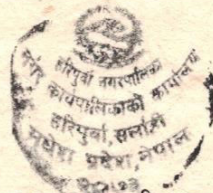 हरिपुर्वा नगरपालिका
नगर कार्यपालिकाको कार्यालय
हरिपुर्वा, सर्लाही
मधेश प्रदेश, नेपाल
२०७३